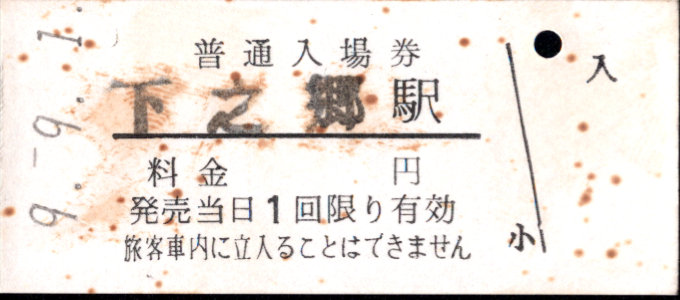 9.-9.1.
普通入場券
下之郷駅
料金 円
発売当日1回限り有効
旅客車内に立入ることはできません
入
小